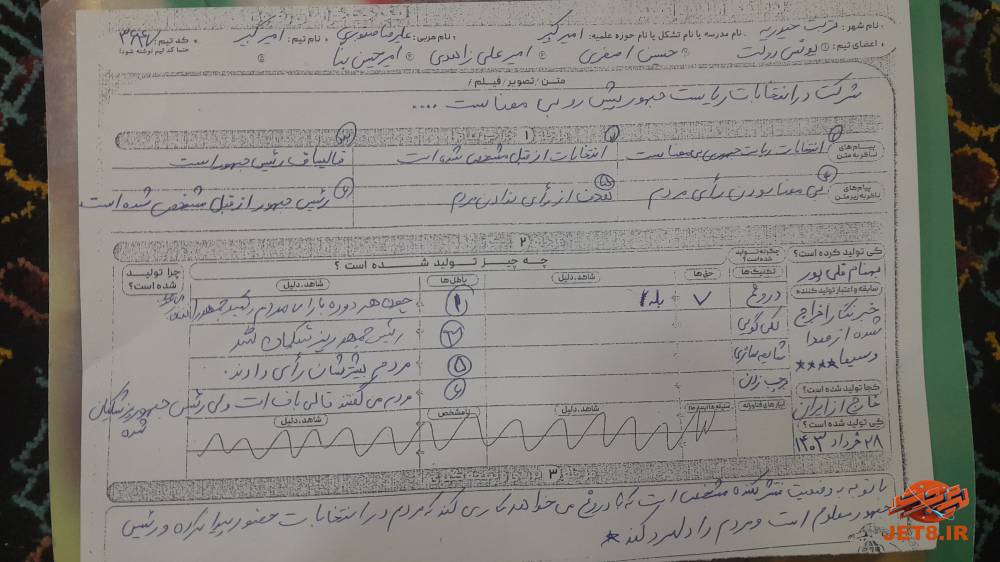 نام شهر: تربت حیدریه نام مدرسه یا نام تشکل یا نام حوزه علمیه: امیرکبیر نام مربی: علیرضا نام تیم: امیرکبیر کد تیم:
حتما کد تیم نوشته شود!
اعضای تیم: ① یونس دولت ② حسن اصغری ③ امیرعلی زاهدی ④ امیرحسین
متن / تصویر / فیلم /
شرکت در انتخابات ریاست جمهوری پیش رو بی معناست ....
۱
پیام‌های ناظر به متن
انتخابات ریاست جمهوری بی معناست
انتخابات از قبل مشخص شده است
قالیباف رئیس جمهور است
پیام‌های ناظر به زیر متن
بی معنا بودن رأی مردم
رأی ندادن مردم
رئیس جمهور از قبل مشخص شده است
۲
کی تولید کرده است؟
بهنام قلی پور
سابقه و اعتبار تولید کننده
خبرنگار اخراج
شده از صدا
و سیما ****
کجا تولید شده است؟
خارج از ایران
کی تولید شده است؟
۲۸ خرداد ۱۴۰۳
چگونه تولید شده است؟
تکنیک‌ها
دروغ
کلی گویی
شایعه سازی
برچسب زدن
ابزارهای فناورانه
چه چیز تولید شده است ؟
حق‌ها شاهد، دلیل باطل‌ها شاهد، دلیل
۷ بله ۴ چون هر دوره با رأی مردم رئیس جمهور
۳ رئیس جمهور پزشکیان شد
۵ مردم بیشترشان رأی دادند.
۶ مردم می گفتند قالی باف است ولی رئیس جمهور پزشکیان
شده
شاهد، دلیل نامشخص شاهد، دلیل
چرا تولید شده است؟
۳
با توجه به وضعیت نشر کننده مشخص است که با دروغ می خواهد کاری کند که مردم در انتخابات حضور پیدا نکرده و رئیس
جمهور معلوم است و مردم را دلسرد کند *
JET8.IR